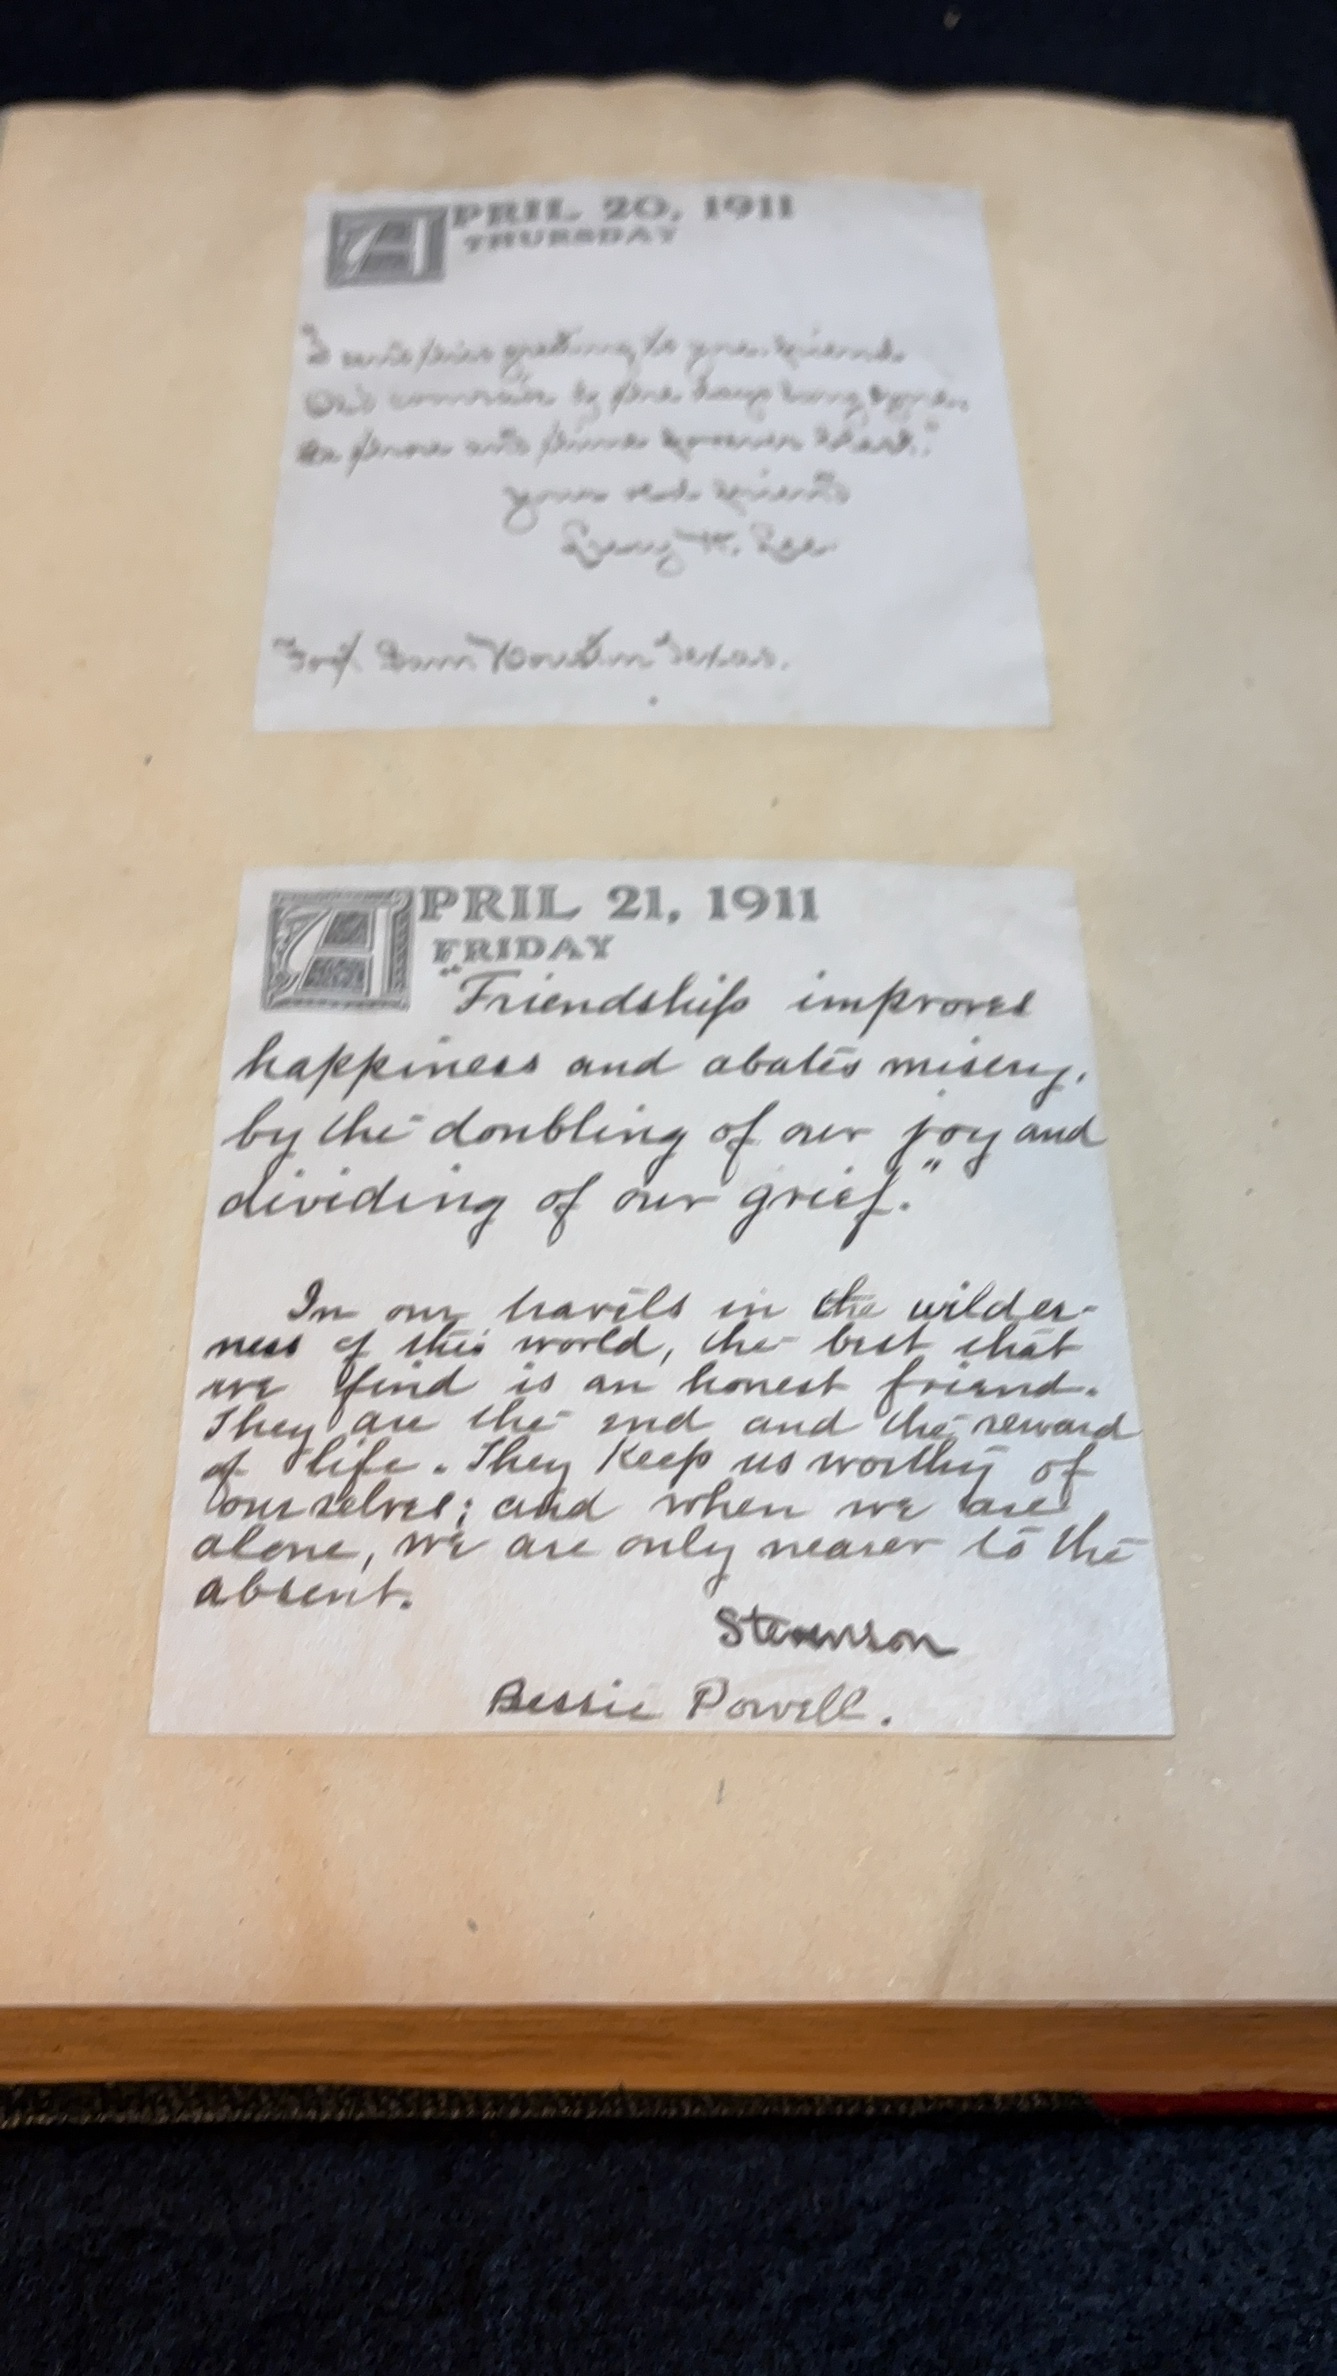 APRIL 20, 1911
THURSDAY
I send this greeting to you friend
Old comrade of the days
yours friend
Lee
Fort Sam Houston Texas.
APRIL 21, 1911
FRIDAY
"Friendship improves
happiness and abates misery,
by the doubling of our joy and
dividing of our grief."
In our travels in the wilder-
ness of this world, the best that
we find is an honest friend.
They are the end and the reward
of life. They keep us worthy of
ourselves; and when we are
alone, we are only nearer to the
absent.
Stevenson
Bessie Powell.